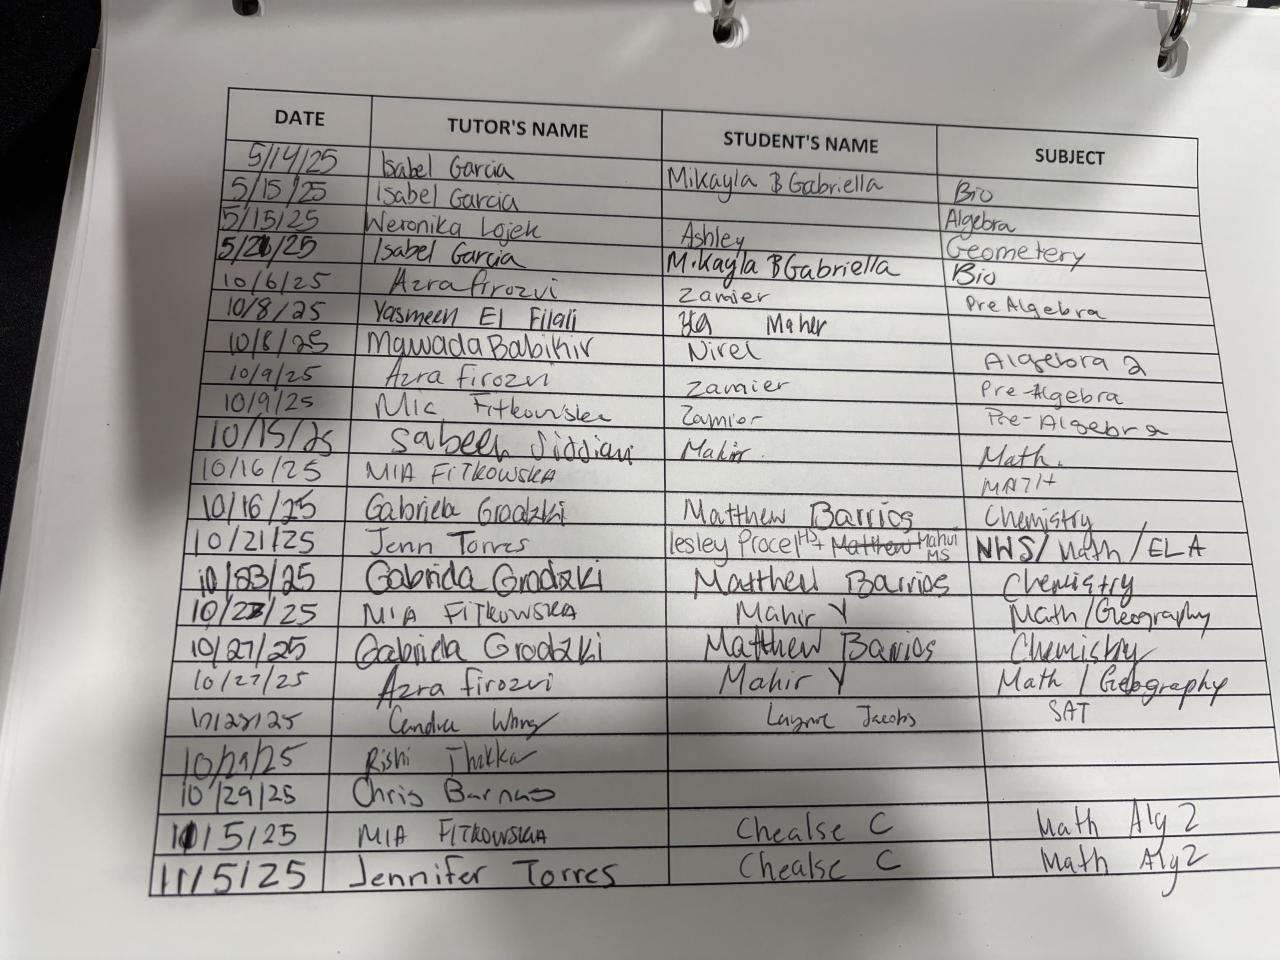 DATE TUTOR'S NAME STUDENT'S NAME SUBJECT
5/14/25 Isabel Garcia Mikayla & Gabriella Bio
5/15/25 Isabel Garcia Algebra
5/15/25 Weronika Lojek Ashley Geometery
5/21/25 Isabel Garcia Mikayla & Gabriella Bio
10/6/25 Azra firozvi Zamier Pre Algebra
10/8/25 Yasmeen El Filali Maher
10/8/25 Mawada Babikir Nirel Algebra 2
10/9/25 Azra firozvi Zamier Pre-Algebra
10/9/25 Mia Fitkowska Zamier Pre-Algebra
10/15/25 Sabeeh Siddiqui Mahir. Math.
10/16/25 MIA FITKOWSKA MATH
10/16/25 Gabriela Grodzki Matthew Barrios Chemistry
10/21/25 Jenn Torres lesley Procel HS + Matthew Mahir MS NHS/Math/ELA
10/23/25 Gabriela Grodzki Matthew Barrios Chemistry
10/23/25 MIA FITKOWSKA Mahir Y Math/Geography
10/27/25 Gabriela Grodzki Matthew Barrios Chemistry
10/27/25 Azra firozvi Mahir Y Math / Geography
Jacobs SAT
Rishi Thakkar
10/29/25 Chris Barnas
11/5/25 MIA FITKOWSKA Chealse C Math Alg 2
11/5/25 Jennifer Torres Chealse C Math Alg 2